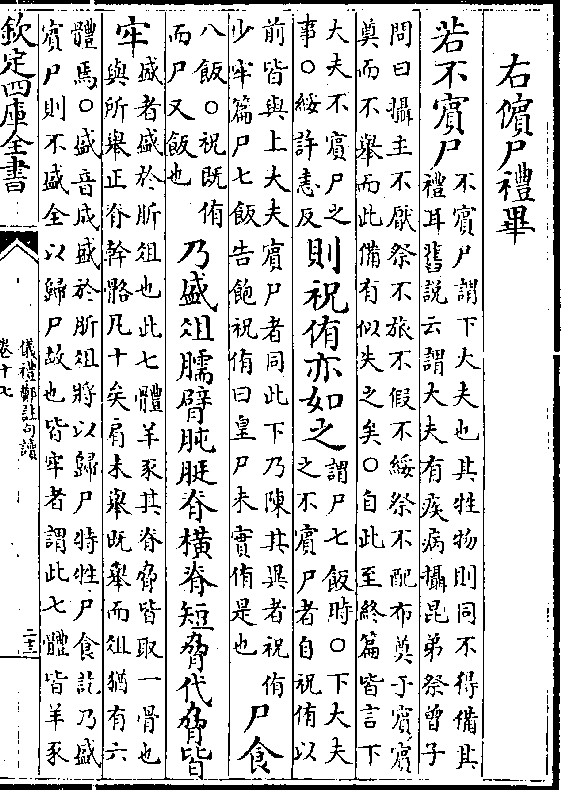 右儐尸禮畢
若不賓尸不賓尸謂下大夫也其牲物則同不得備其
禮耳舊說云謂大夫有疾病攝昆弟祭曾子
問曰攝主不厭祭不旅不假不綏祭不配布奠于賓賓
奠而不舉而此備有似失之矣○自此至終篇皆言下
大夫不賓尸之
事○綏許恚反則祝侑亦如之謂尸七飯時○下大夫
之不賓尸者自祝侑以
前皆與上大夫賓尸者同此下乃陳其異者祝侑
少牢篇尸七飯告飽祝侑曰皇尸未實侑是也尸食
八飯○祝既侑
而尸又飯也乃盛俎臑臂肫脡脊橫脊短脅代脅皆
牢盛者盛於肵俎也此七體羊豕其脊脅皆取一骨也
與所舉正脊幹骼凡十矣肩未舉既舉而俎猶有六
體焉○盛音成盛於肵俎將以歸尸特牲尸食訖乃盛
賓尸則不盛全以歸尸故也皆牢者謂此七體皆羊豕
欽定四庫全書
儀禮鄭註句讀
卷十七
二十三